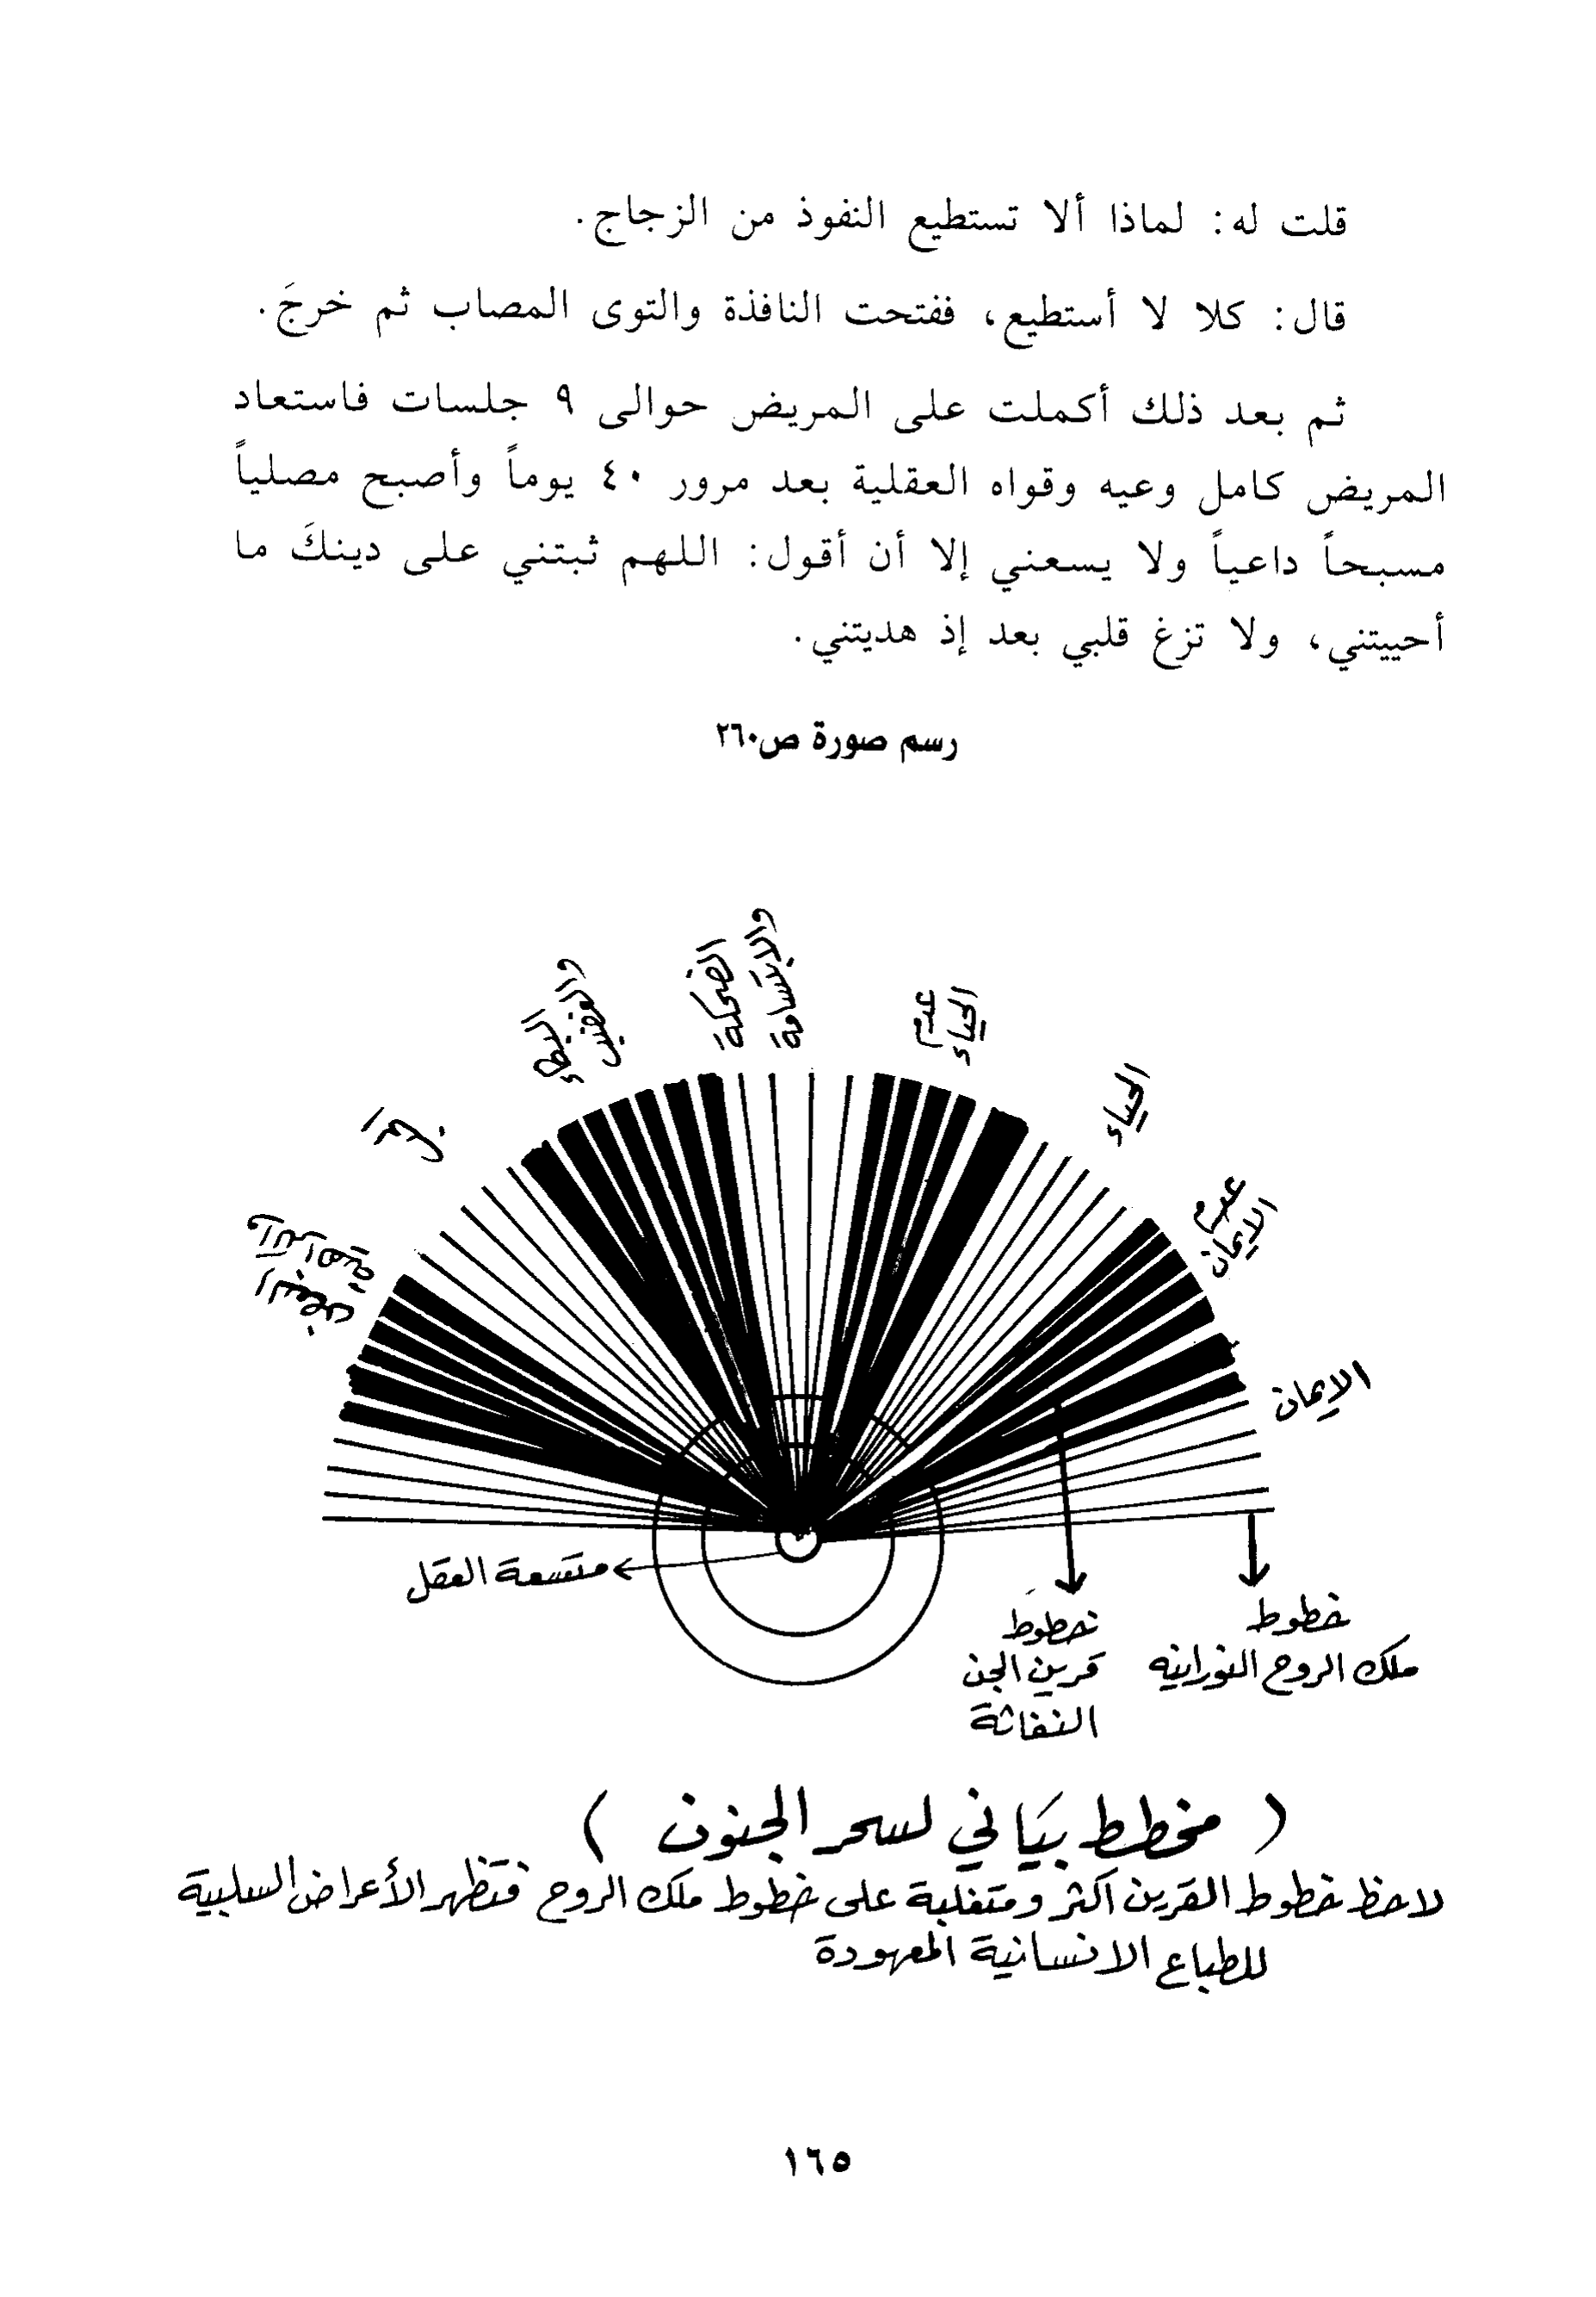 قلت له: لماذا ألا تستطيع النفوذ من الزجاج.
قال: كلا لا أستطيع، ففتحت النافذة والتوى المصاب ثم خرجَ.
ثم بعد ذلك أكملت على المريض حوالى ٩ جلسات فاستعاد
المريض كامل وعيه وقواه العقلية بعد مرور ٤٠ يوماً وأصبح مصلياً
مسبحاً داعياً ولا يسعني إلا أن أقول: اللهم ثبتني على دينكَ ما
أحييتني، ولا تزغ قلبي بعد إذ هديتني.
رسم صورة ص٢٦٠
والابتسامة
الضحكة
والغضب
البطء
عدم
الحياء
الحياء
عدم
الايمان
الايمان
والكراهية
البغض
متسعة العقل
خطوط
ملك الروح النورانيه
خطوط
قرين الجن
النفاثة
( مخطط بيَاني لسحر الجنون )
لاحظ خطوط القرين اكثر ومتغلبة على خطوط ملك الروح فتظهر الأعراض السلبية
للطباع الانسانية المعهودة
١٦٥